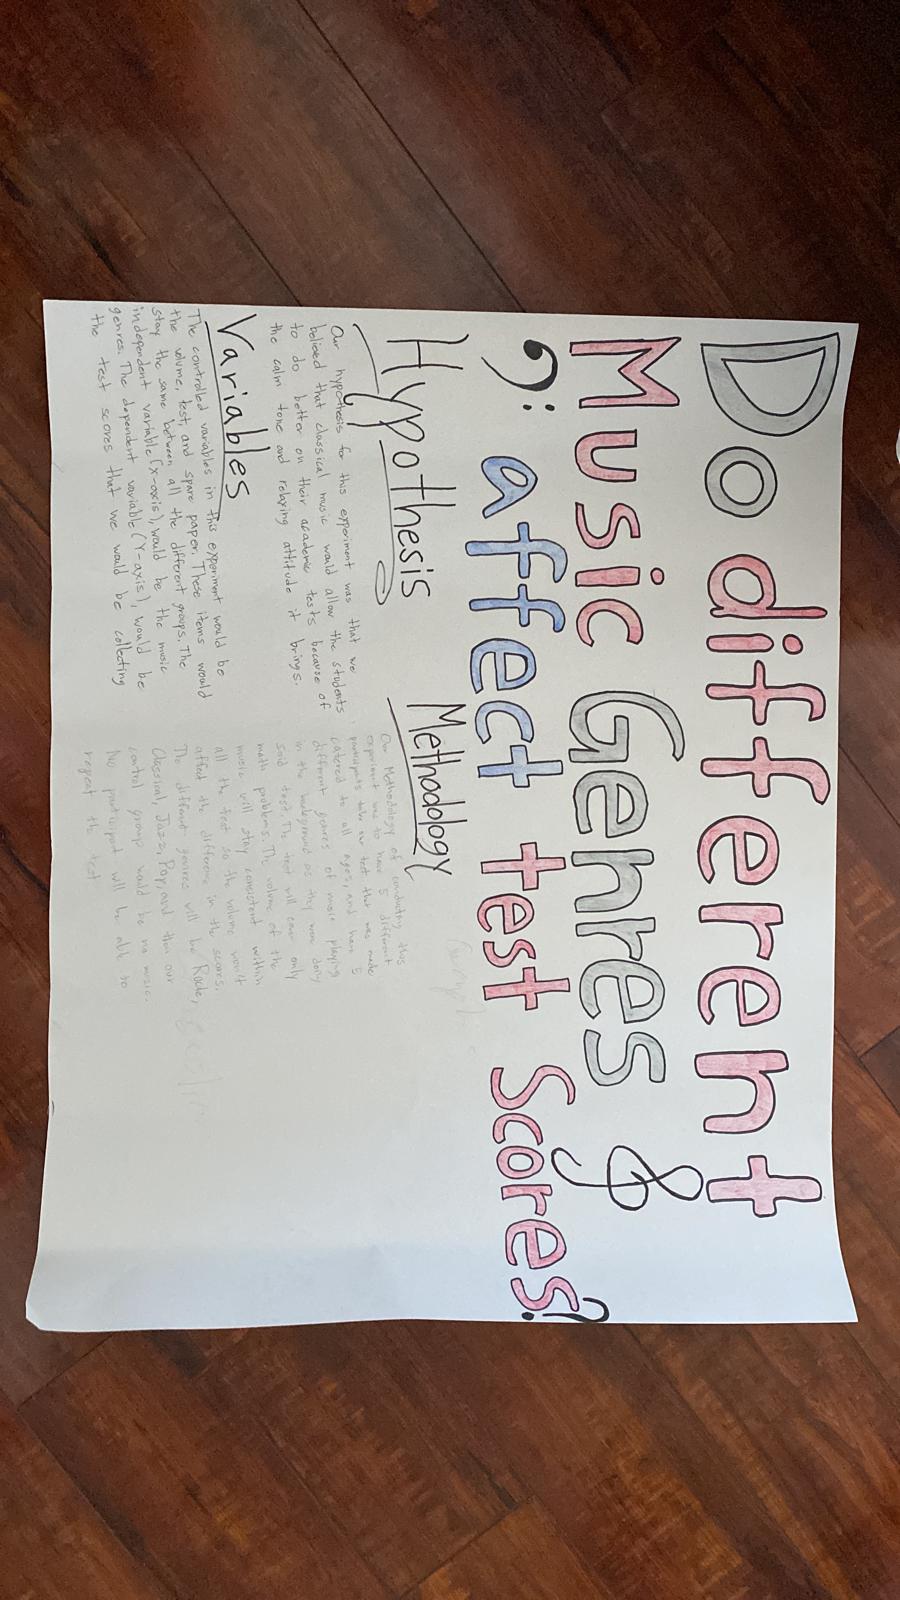 Do different
Music Genres
affect test Scores?
Hypothesis
Our hypothesis for this experiment was that we
believed that classical music would allow the students
to do better on their academic tests because of
the calm tone and relaxing attitude it brings.
Variables
The controlled variables in this experiment would be
the volume, test, and spare paper. These items would
stay the same between all the different groups. The
independent variable (x-axis), would be the music
genres. The dependent variable (Y-axis), would be
the test scores that we would be collecting
Methodology
Our Methodology of conducting this
experiment was to have 5 different
participants take our test that was made
catered to all ages, and have 5
different genres of music playing
in the background as they were doing
said test. The test will cover only
math problems. The volume of the
music will stay consistent within
all the test so the volume won't
affect the difference in the scores.
The different genres will be Rock,
Classical, Jazz, Pop, and then our
control group would be no music.
No participant will be able to
repeat the test